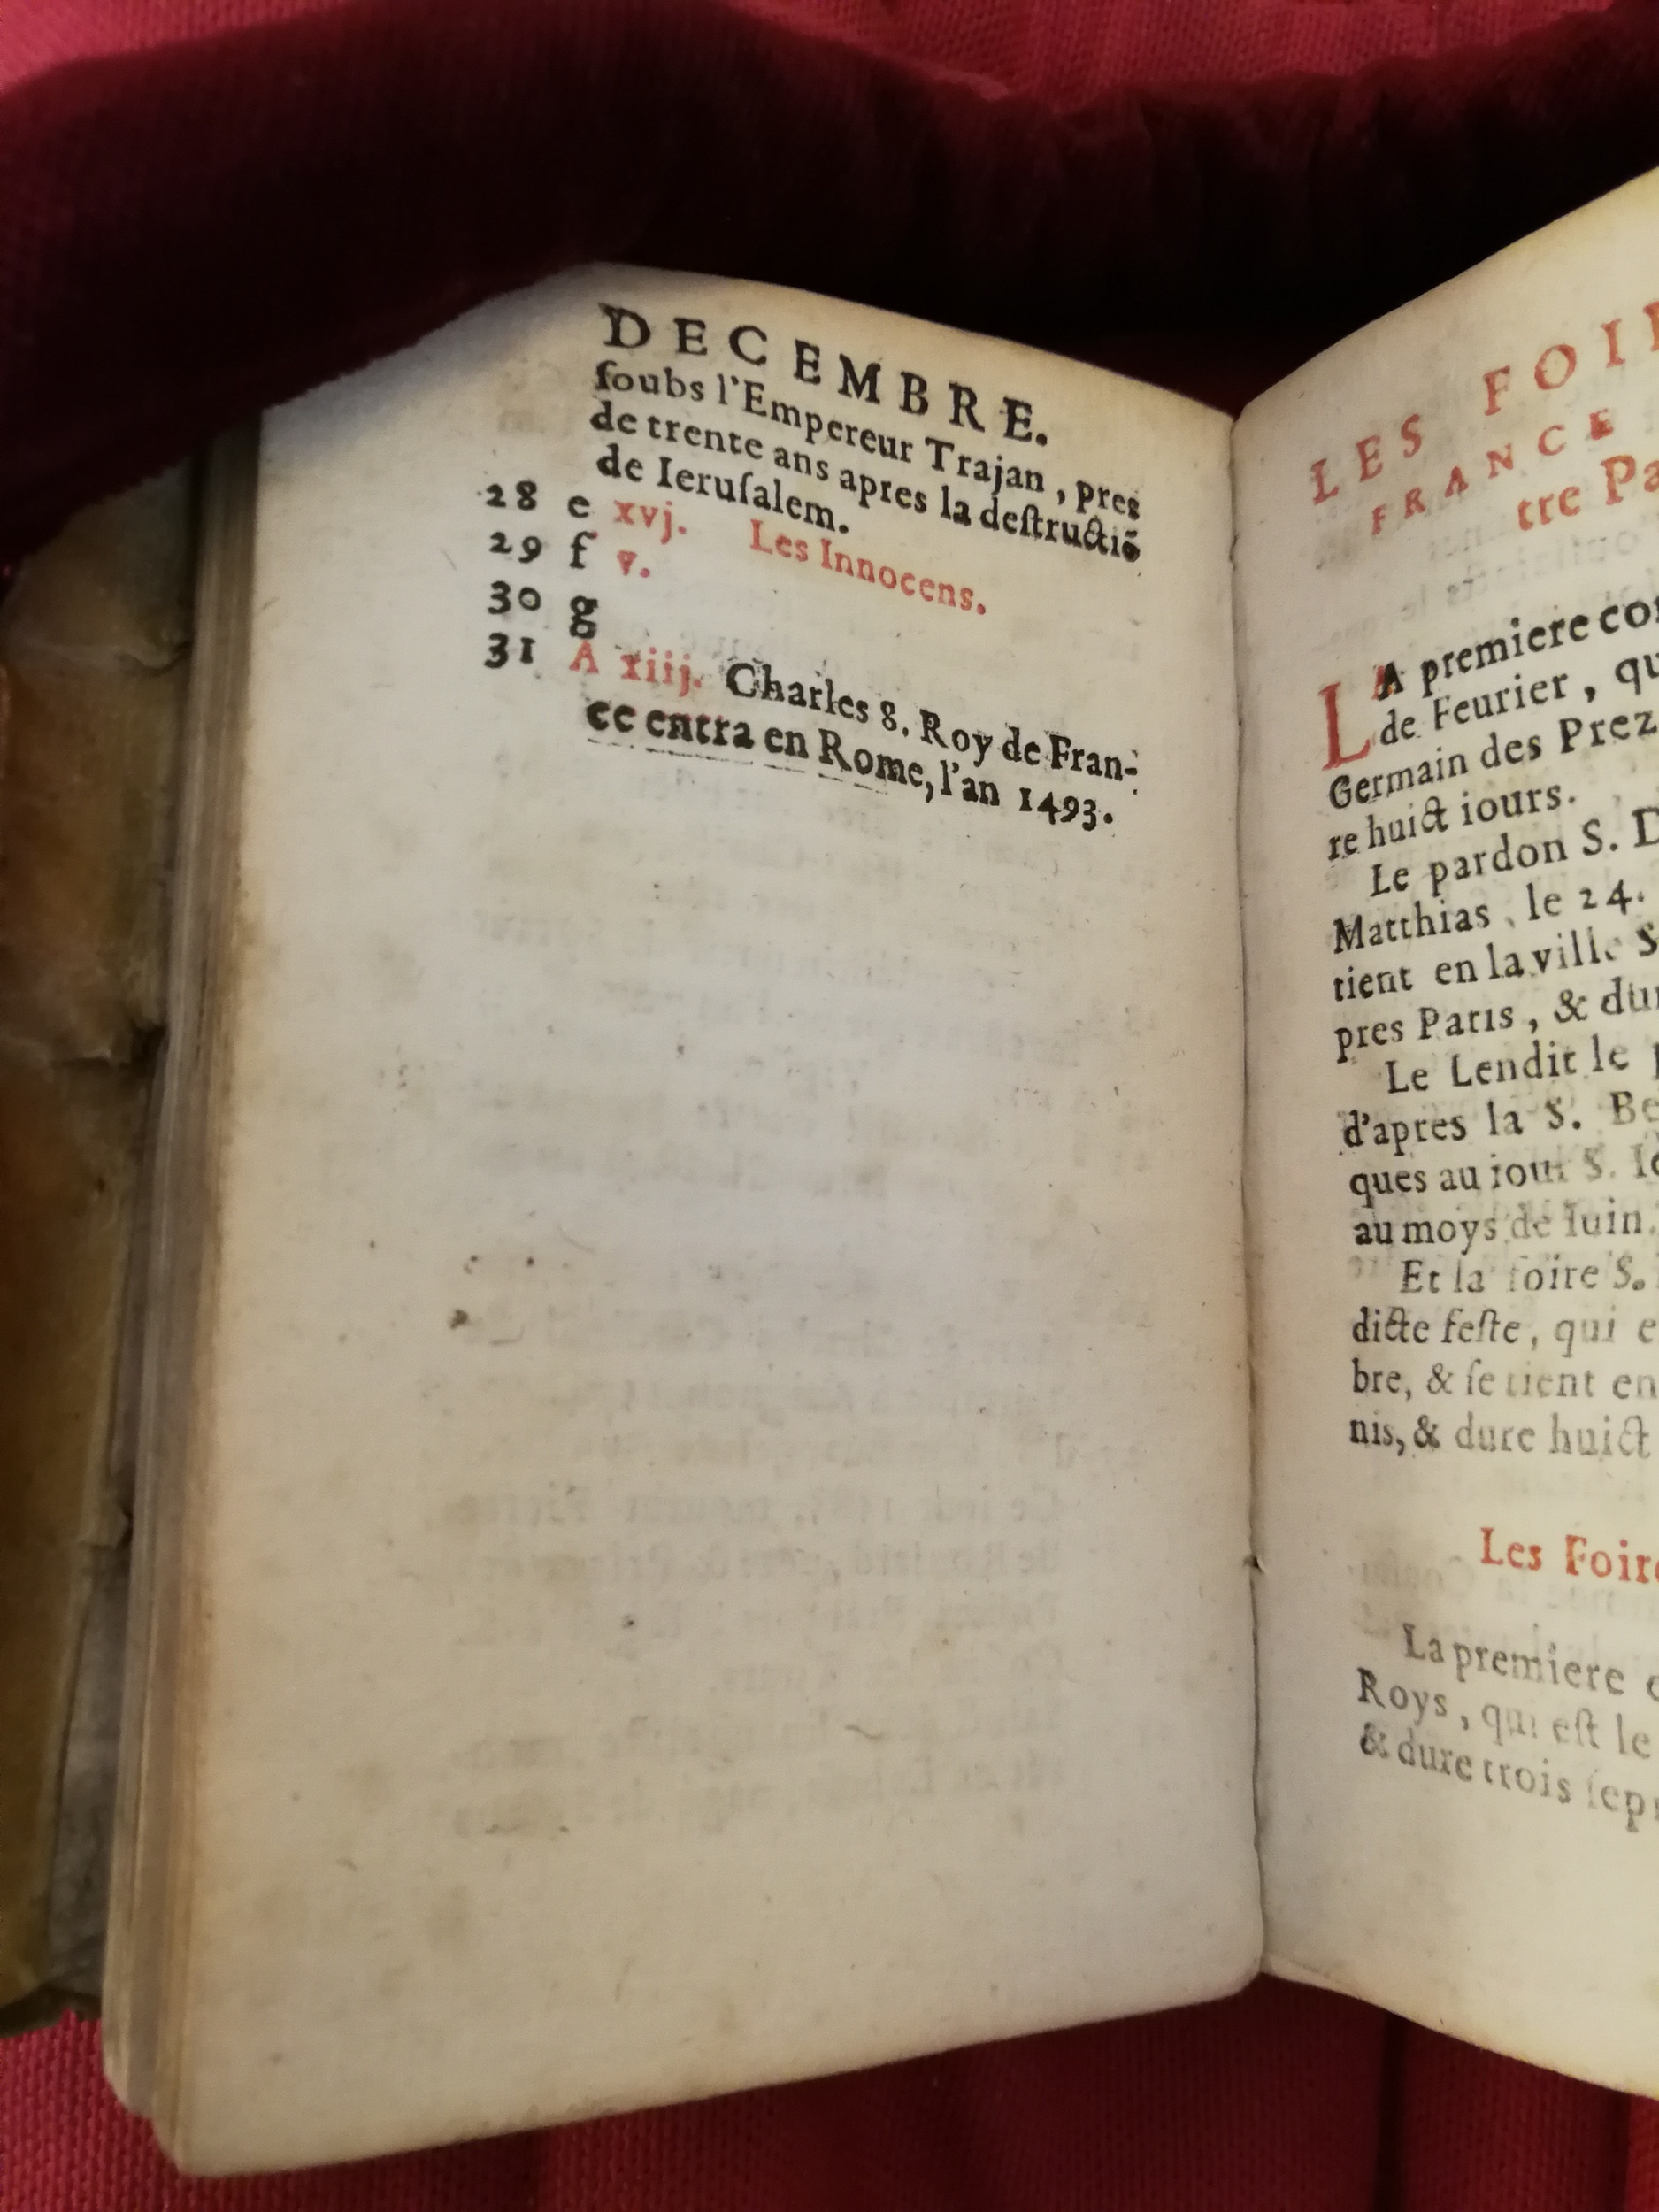 DECEMBRE.
ſoubs l'Empereur Trajan, pres
de trente ans apres la deſtructiõ
de Ieruſalem.
28 e xvj. Les Innocens.
29 f v.
30 g
31 A xiij. Charles 8. Roy de Fran-
ce entra en Rome, l'an 1493.
LES FOI
FRANCE
tre Pa
LA premiere co
de Feurier, qu
Germain des Prez
re huict iours.
Le pardon S. D
Matthias, le 24.
tient en la ville S
pres Paris, & du
Le Lendit le
d'apres la S. Be
ques au iour S. I
au moys de Iuin.
Et la foire S.
dicte feſte, qui e
bre, & ſe tient en
nis, & dure huict
Les Foir
La premiere
Roys, qui eſt le
& dure trois ſep